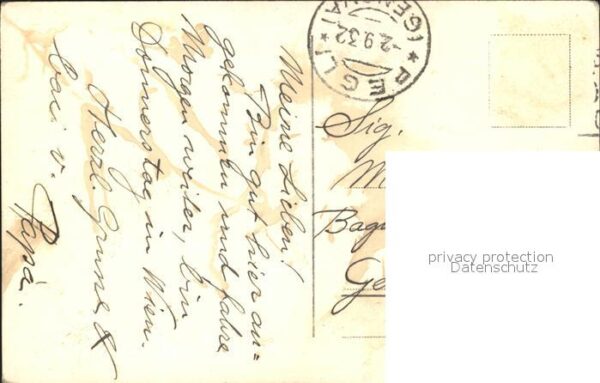 Meine Lieben!
Bin gut hier an=
gekommen und fahre
Morgen weiter, bin
Donnerstag in Wien.
Herzl. Grüsse &
baci v.
Papá.
PEGLI
(GENOVA)
-2.9.32
Sig.
M
Bag
Ge
privacy protection
Datenschutz